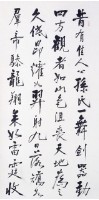 昔有佳人公孫氏一舞劍器動
四方觀者如山色沮喪天地為之
久低昂㸌如羿射九日落矯如
羣帝驂龍翔來如雷霆收